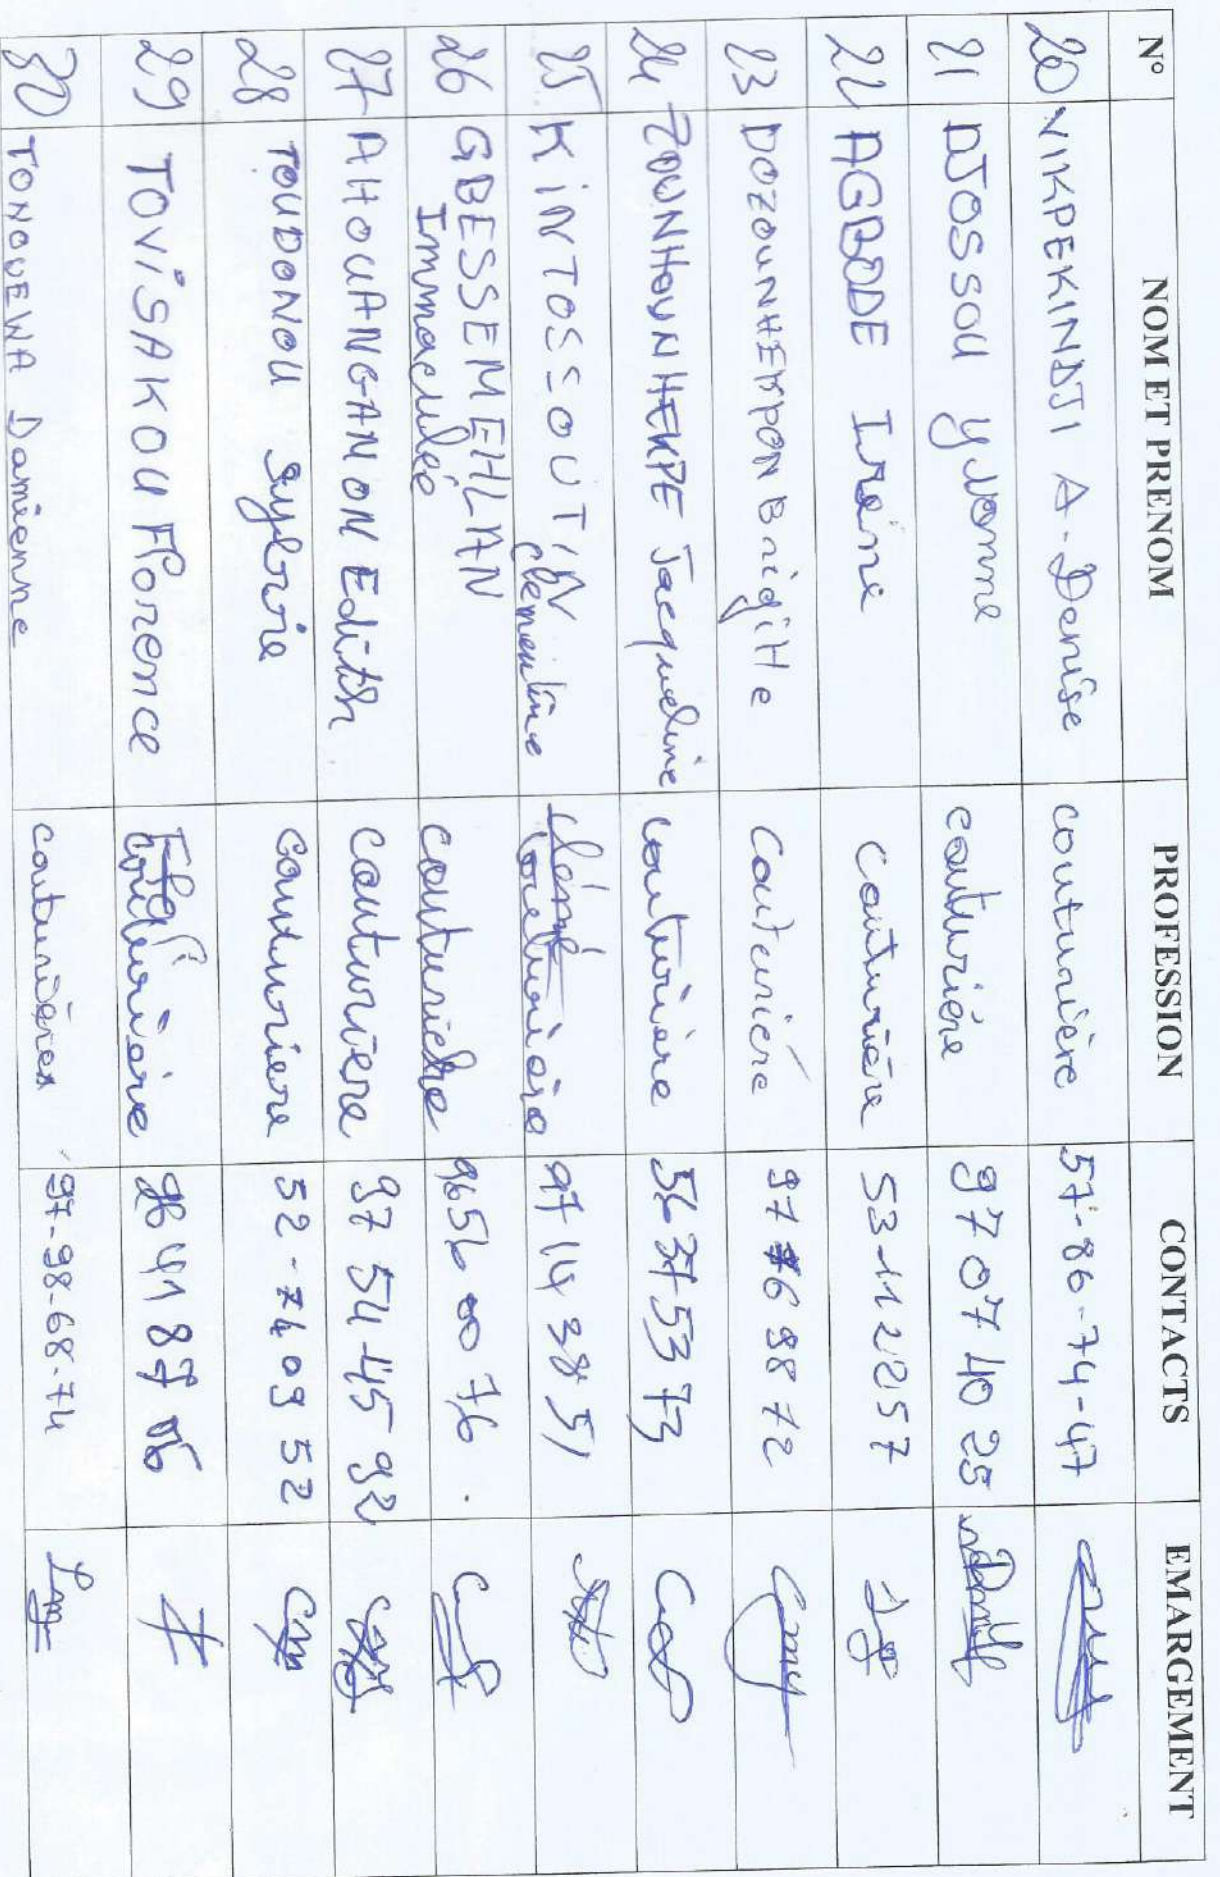 N° NOM ET PRENOM PROFESSION CONTACTS EMARGEMENT
20 VIKPEKINDJI A-Denise couturière 57-86-74-47
21 DJOSSOU Yvonne couturière 97 07 40 25
22 AGBODE Irène couturière 53-11 22 57
23 DOZOUNHEKPON Brigitte Couturière 97 76 98 72
24 ZOUNHOUNHEKPE Jacqueline couturière 56 37 53 73
25 KINTOSSOUTIN Clementine couturière 97 14 38 51
26 GBESSEMEHLAN Immaculée couturière 96 56 00 76
27 AHOUANGANON Edith couturière 97 54 45 92
28 TOUDONOU Sylvie couturiere 52-74 09 52
29 TOVISAKOU Florence couturière 96 41 87 06
30 TONOUEWA Damienne couturières 97-98-68-74